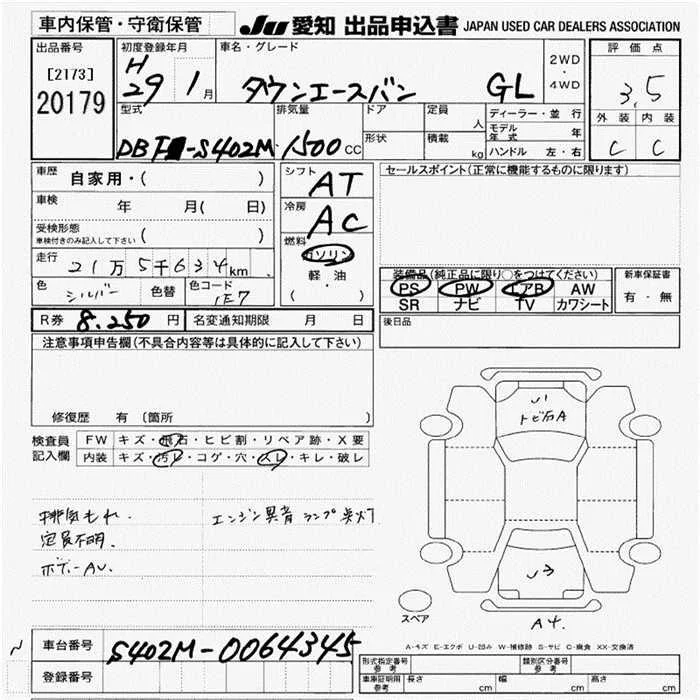 車内保管・守衛保管 JU 愛知 出品申込書 JAPAN USED CAR DEALERS ASSOCIATION
出品番号 初度登録年月 車名・グレード 2WD ・ 4WD 評価点
[2173] H 29 1月 タウンエースバン GL 3.5
20179 外装 内装
型式 排気量 ドア 定員 人 ディーラー・並行 C C
モデル年式 年
DBF-S402M 1500CC 形状 積載 kg ハンドル 左・右
車歴 自家用・( ) シフト AT セールスポイント(正常に機能するものに限ります)
車検 年 月( 日) 冷房 AC
受検形態 ( )
車検付きのみ記入して下さい
燃料 ガソリン
走行 21万5千634km 軽油 装備品(純正品に限り○をつけてください) 新車保証書
色 シルバー 色替 色コード 1E7 ( ・ ) PS PW エアB AW 有・無
SR ナビ TV カワシート
R券 8.250円 名変通知期限 月 日 後日品
注意事項申告欄(不具合内容等は具体的に記入して下さい)
修復歴 有〔箇所 〕
検査員 FW キズ・飛石・ヒビ割・リペア跡・X要
記入欄 内装 キズ・汚レ・コゲ・穴・スレ・キレ・破レ
トビ石A
排気もれ. エンジン異音 ランプ点灯
定員不明.
ボデーAU.
スペア
A4.
A-キズ E-エクボ U-凹み W-補修跡 S-サビ C-腐食 XX-交換済
車台番号 S402M-0064345
登録番号
形式指定番号 参考 類別区分番号 参考
車庫証明用 参考 長さ cm 幅 cm 高さ cm